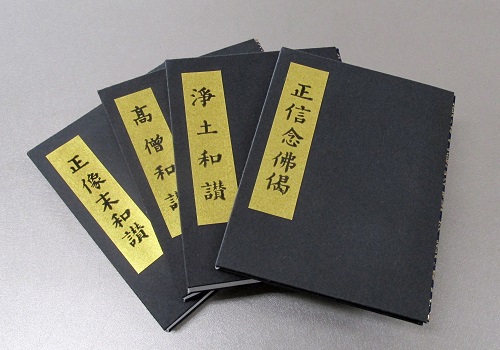 正信念佛偈
淨土和讃
高僧和讃
正像末和讃